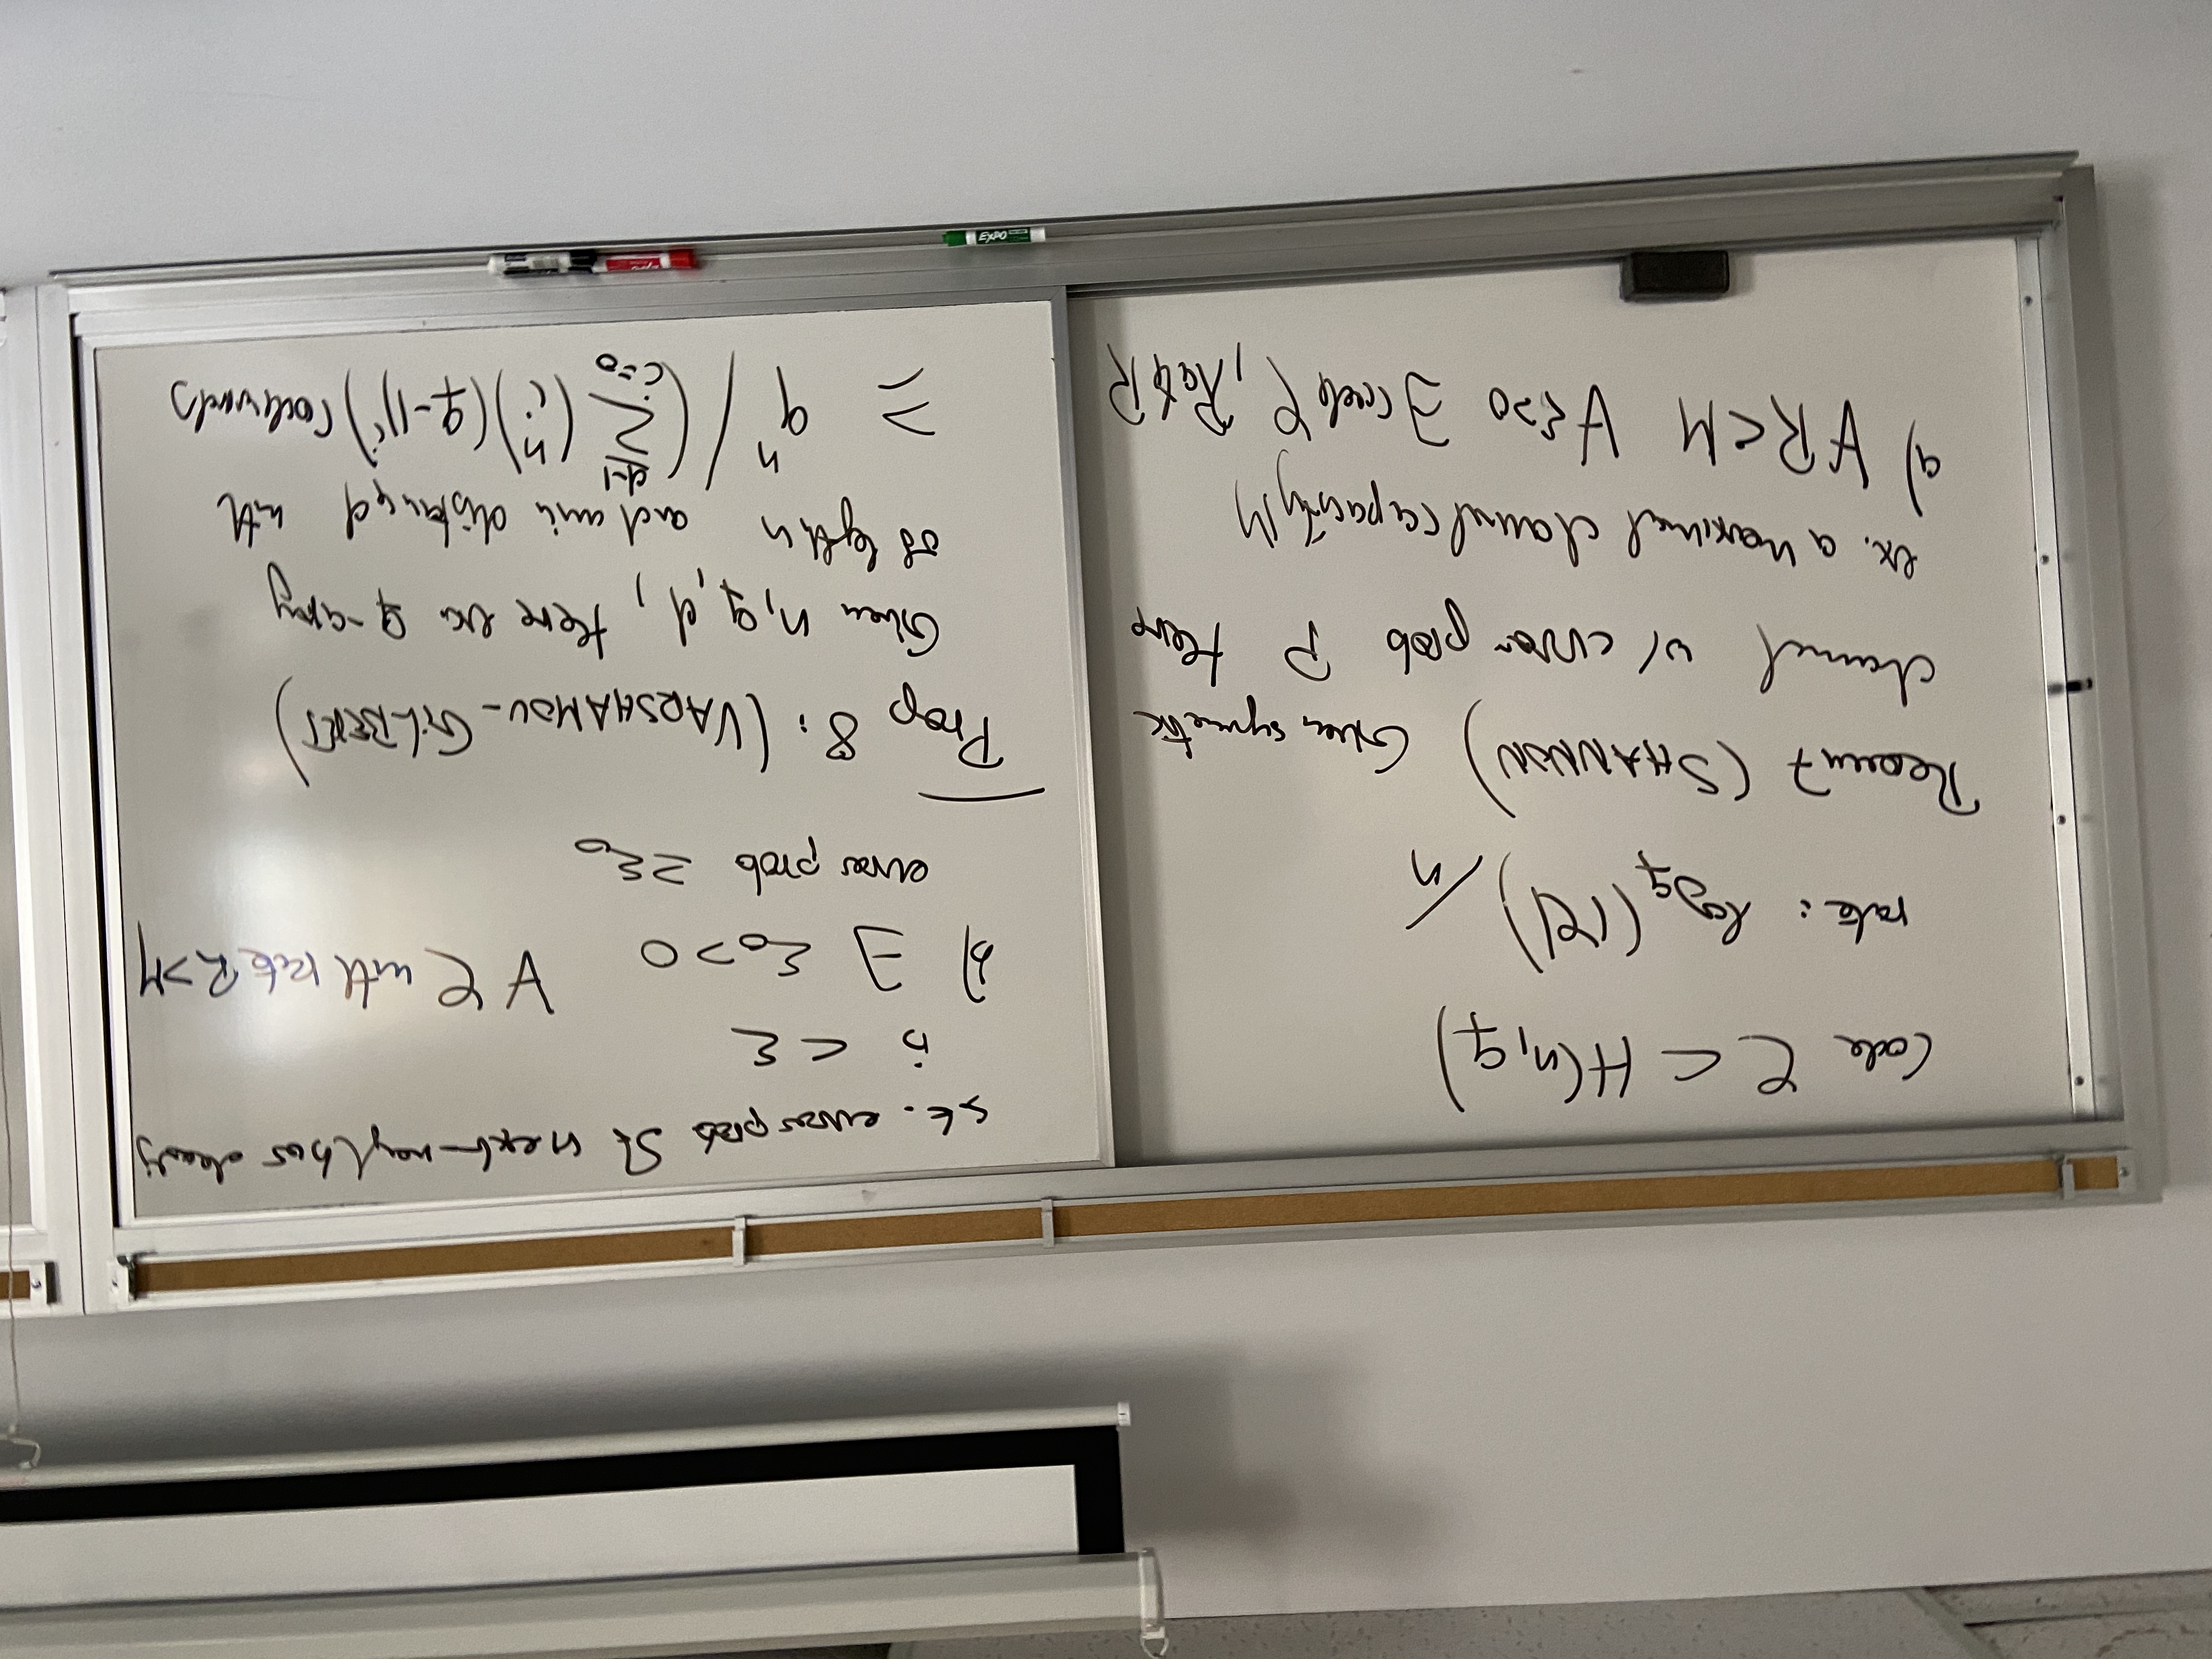 Code C ⊂ H(n,q)
rate: log_q(|C|)/n
Theorem 7 (SHANNON) Given symmetric
channel w/ error prob p there
ex. a maximal channel capacity M
a) ∀R<M ∀ε>0 ∃ code C, Rate R
s.t. error prob of next-neighbor decoding
is < ε
b) ∃ ε₀>0 ∀ C with rate R>M
error prob ≥ε₀
Prop 8: (VARSHAMOV-GILBERT)
Given n,q,d, there ex q-ary
of length n and min distance d with
≥ qⁿ / (∑_{i=0}^{d-1} (n i)(q-1)^i) codewords
EXPO